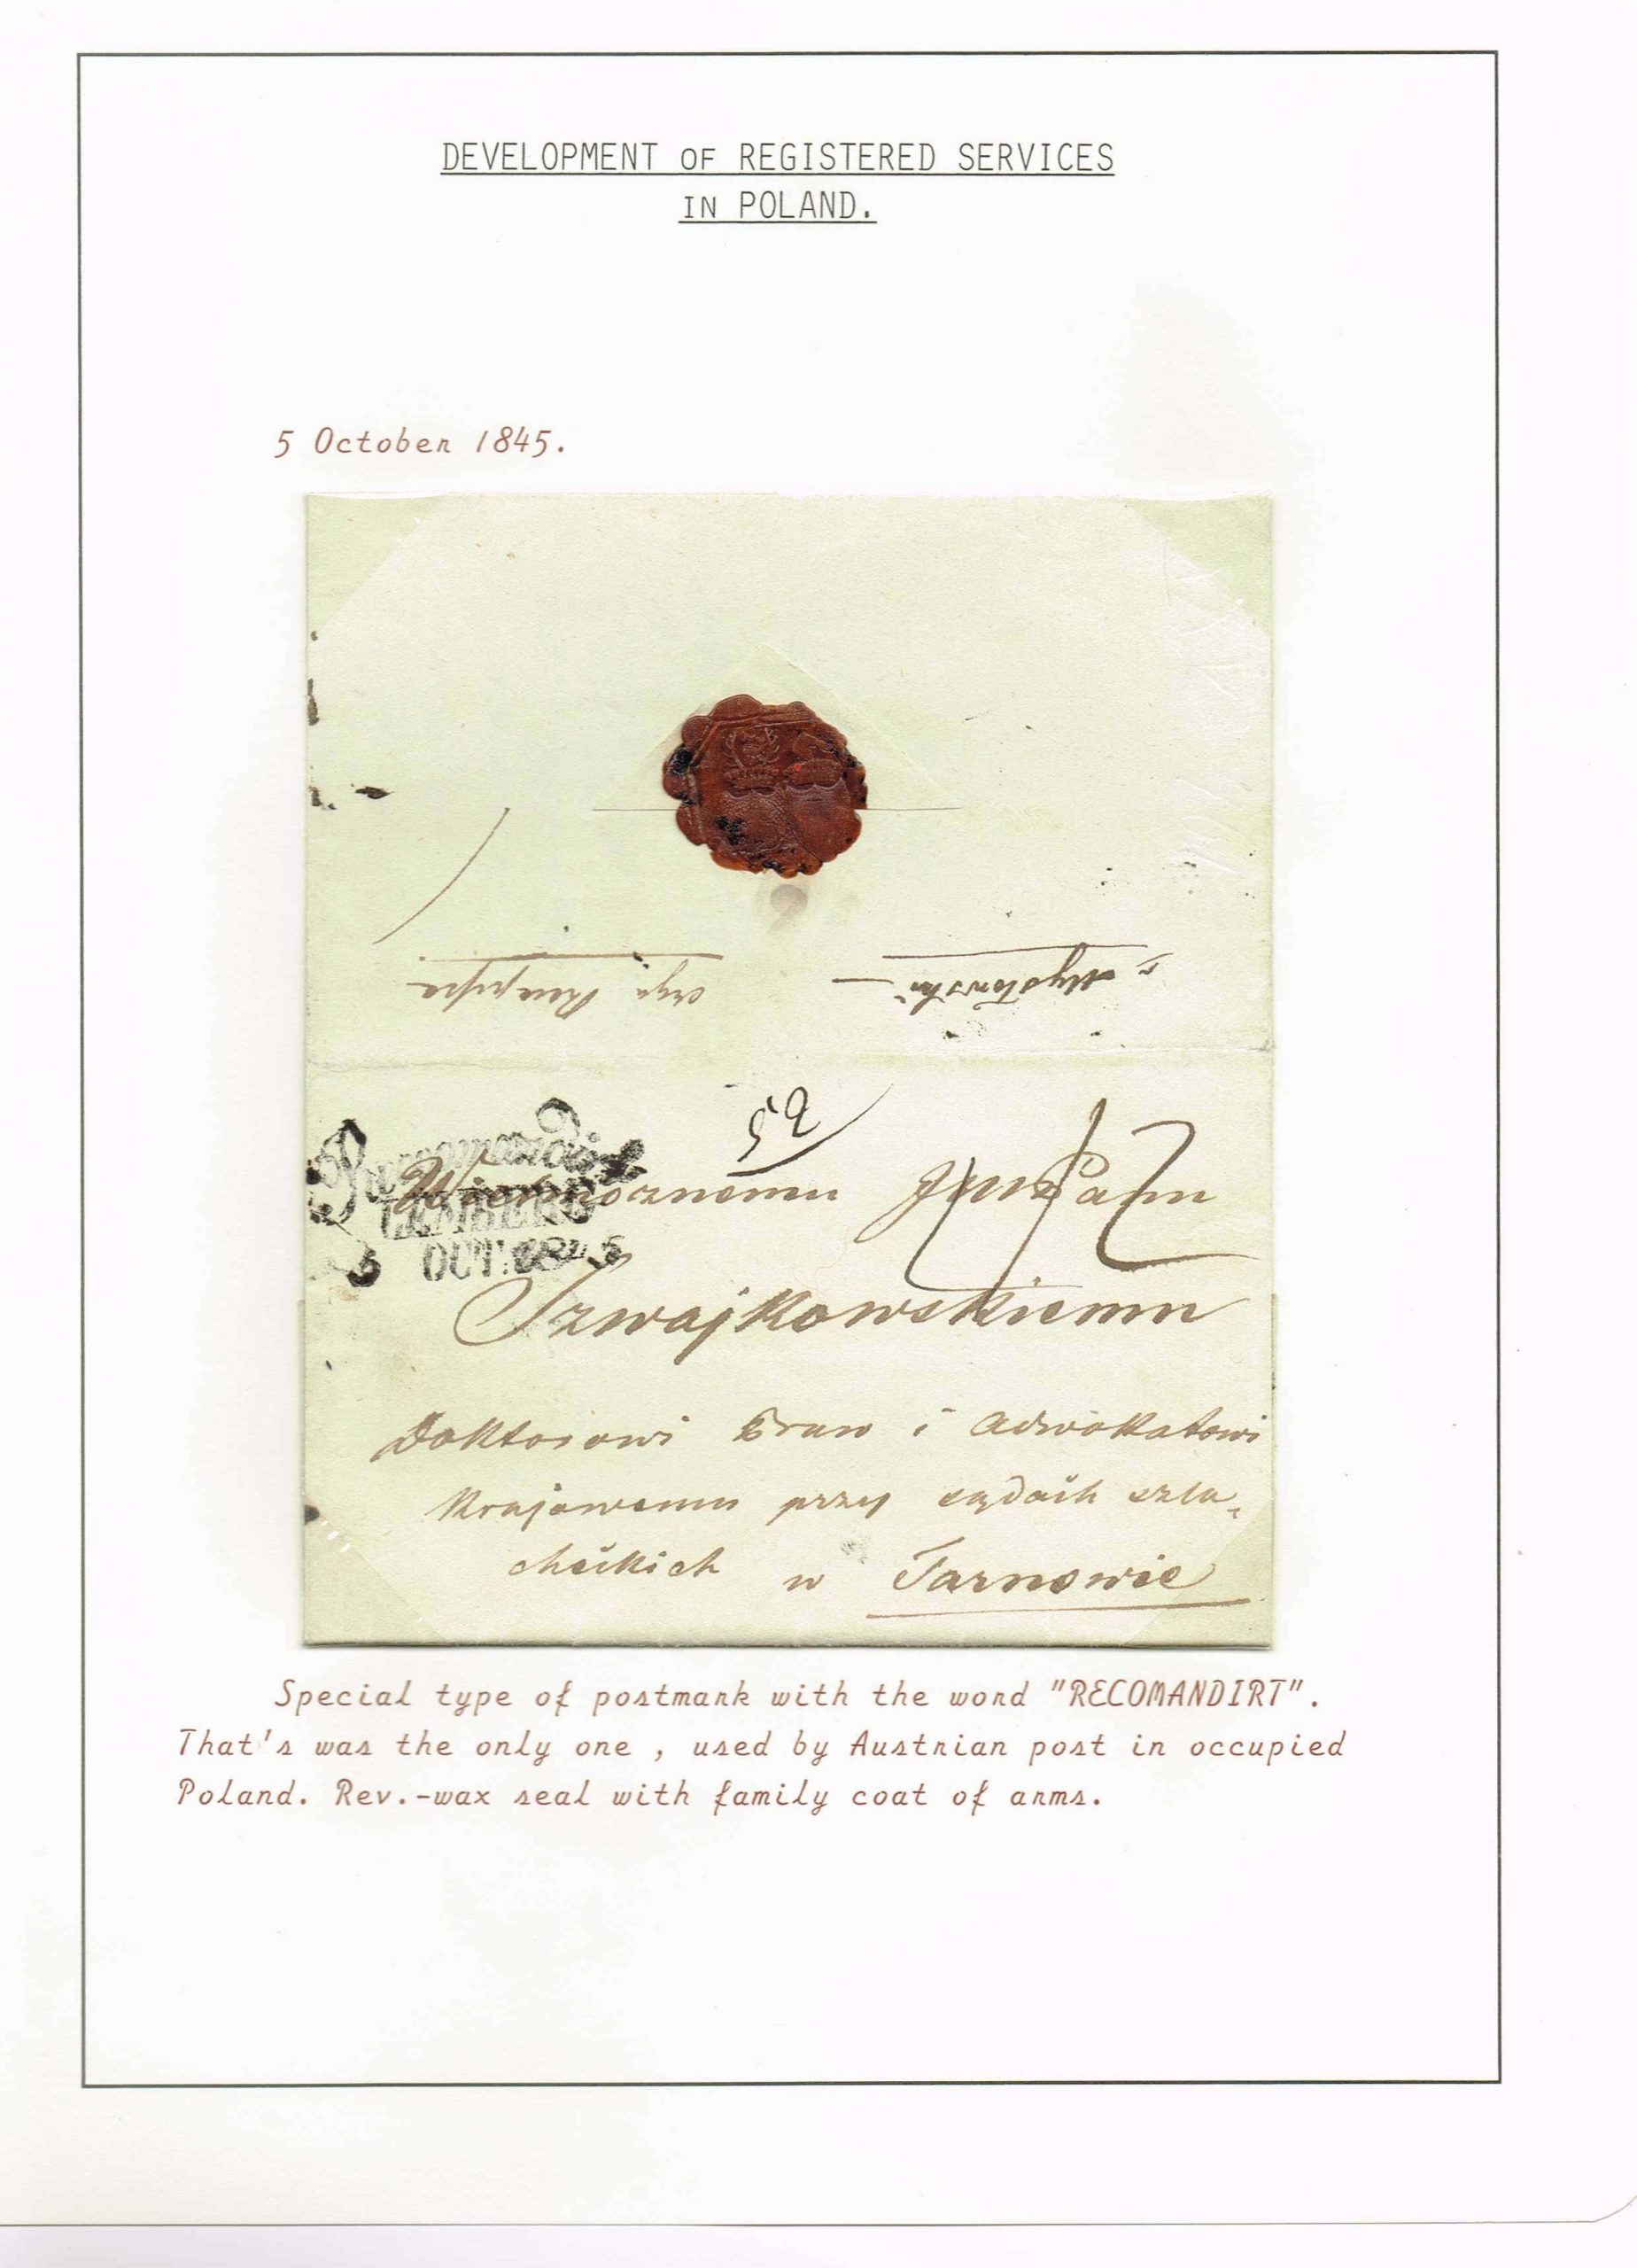 DEVELOPMENT OF REGISTERED SERVICES
IN POLAND.
5 October 1845.
Recomandirt
LEMBERG
5 OCT: 1845
Wielmoznemu Jmc Panu
Szwajkowskiemu
Doktorowi Praw i Adwokatowi
Krajowemu przy sądach szla-
checkich w Tarnowie
Special type of postmark with the word "RECOMANDIRT".
That's was the only one , used by Austrian post in occupied
Poland. Rev.-wax seal with family coat of arms.